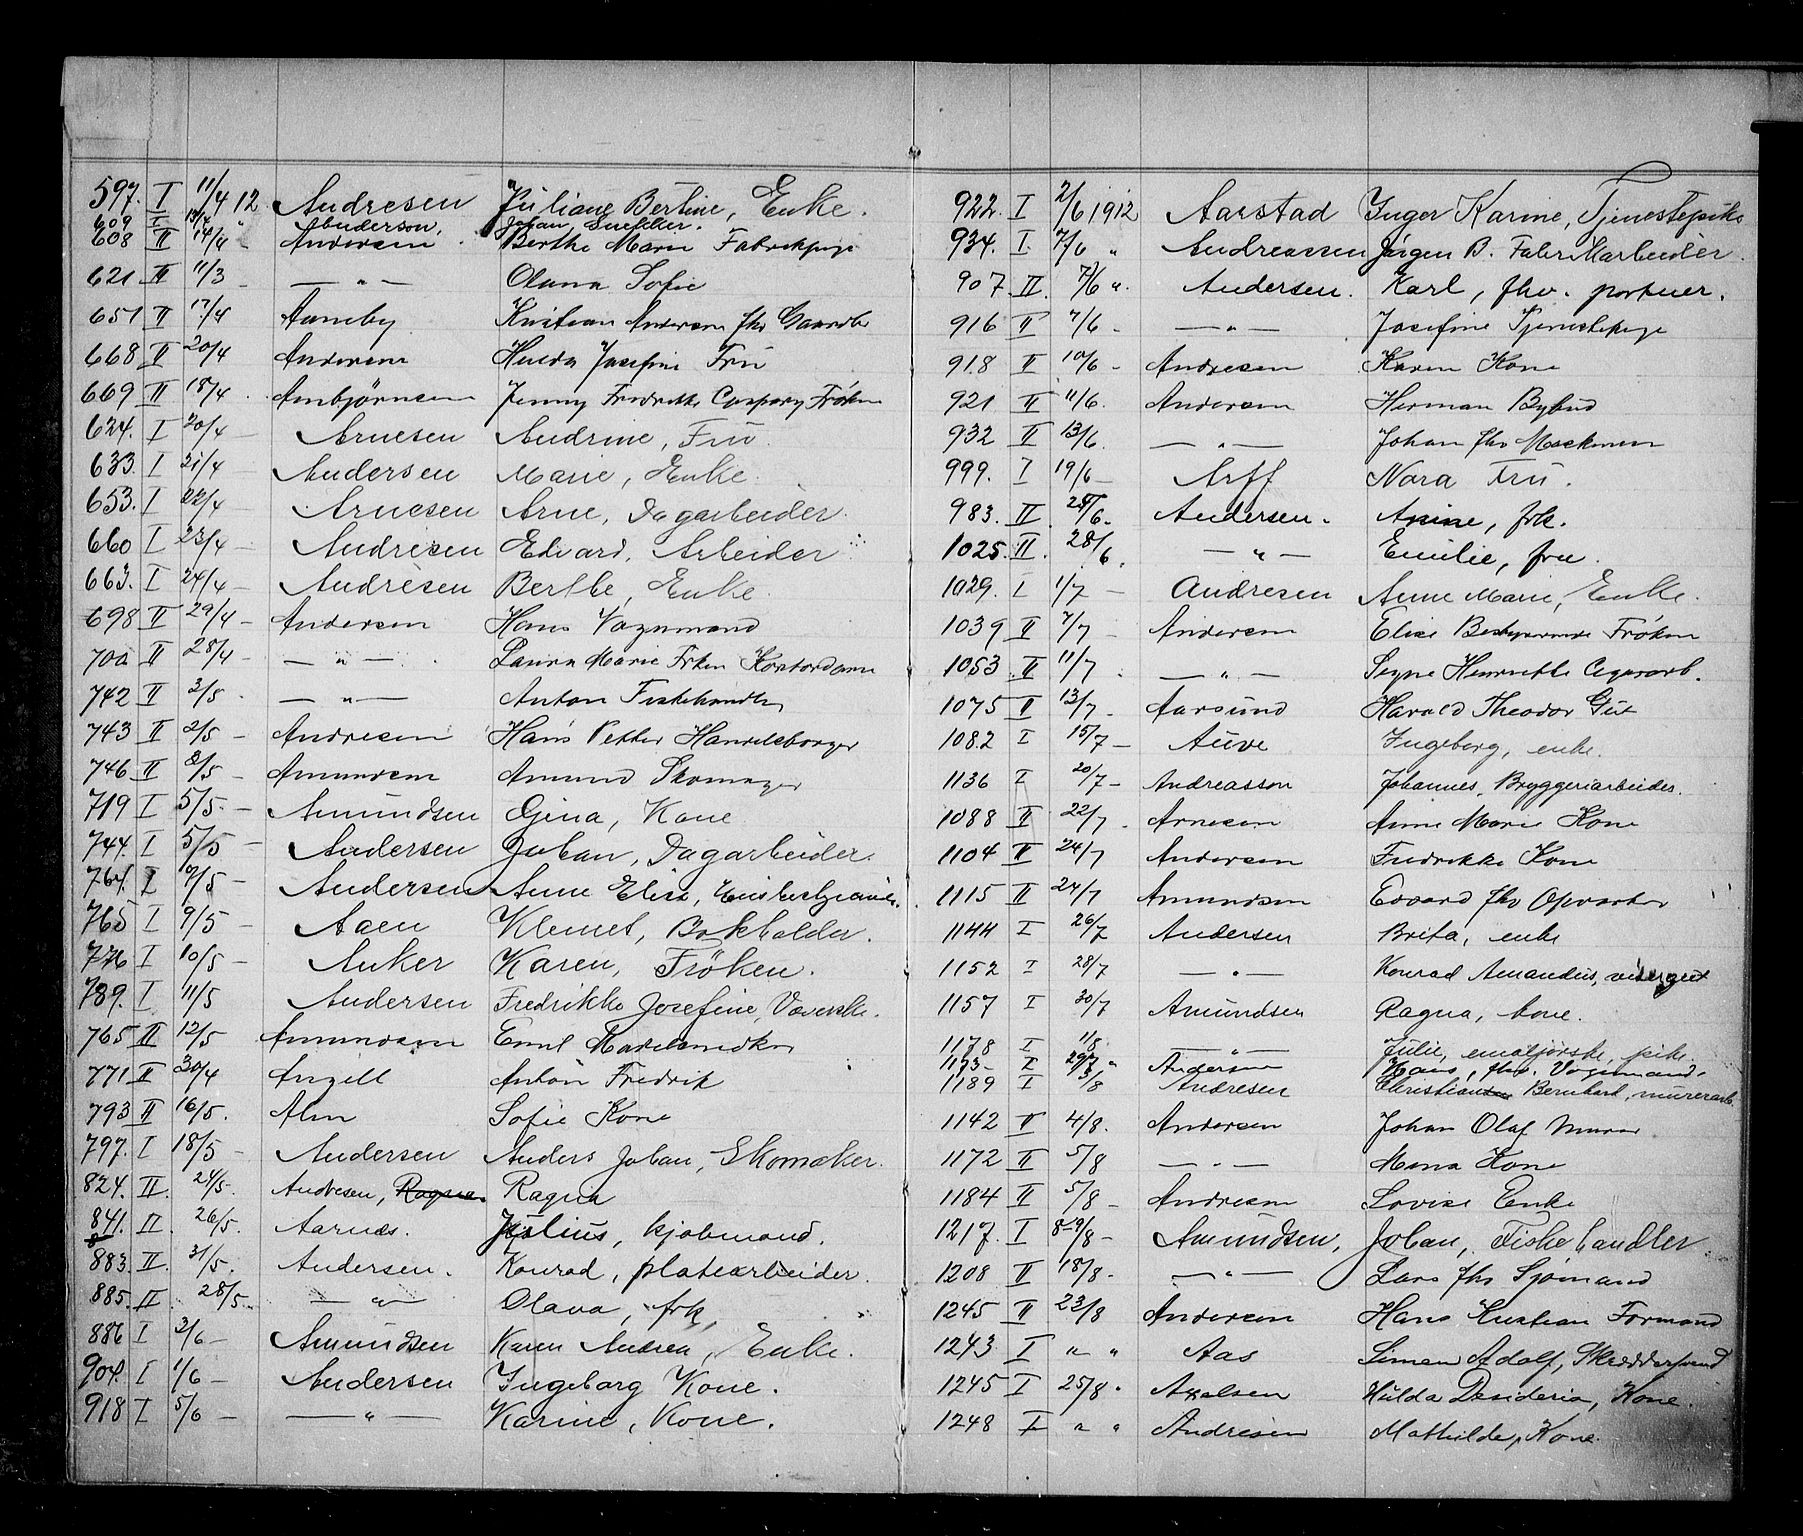 597. I 11/4 12 Andresen Juliane Bertine, Enke.
609 I 13/4 " Anderson, Johan, Snekker.
608 II 14/4 Andersen Berthe Marie Fabrikpige
621 II 11/3 - — " — Olava Sofie
651 II 17/4 Aamby Kristian Andersen fhv Gaardbr
668 II 20/4 Andersen Hulda Josefine Fru
669 II 18/4 Arnbjörnsen Jenny Fredrikke Caspary Frøken
624. I 20/4 - Arnesen Andrine, Fru
633. I 21/4 - Andersen Marie, Enke.
653. I 22/4 - Arnesen Arne, Dagarbeider.
660 I 23/4 - Andresen Edvard, Arbeider
663. I 24/4 - Andresen Berthe, Enke.
698 II 29/4 - Andersen Hans Vognmand
700 II 28/4 - — " — Laura Marie Frken Kontordame
742 II 3/5 - — " — Anton Fiskehandler
743 II 2/5 - Andresen Hans Petter Handelsborger
746 II 8/5 - Amundsen Amund Skomager
719 I 5/5 - Amundsen Gina, Kone
744. I 5/5 - Andersen Johan, Dagarbeider.
764. I 9/5 - Andersen Anne Elise,
765 I 9/5 - Aaen Klemet, Bokholder.
776 I 10/5 - Anker Karen, Fröken.
789. I 11/5 Andersen Fredrikke Josefine, Væverske.
765 II 12/5 Amundsen Emil
771 II 30/4 Angell Anton Fredrik
793 II 16/5. Alm Sofie Kone
797. I 18/5 - Andersen Anders Johan, Skomaker.
824. II. 24/5. Andresen, Ragna. Ragna
841. II. 26/5. Aarnæs. Julius, kjøbmand.
883. II. 31/5. Andersen. Konrad, platearbeider.
885. II. 28/5. — " — Olava, frk.
886 I 3/6 - Amundsen Karen Andrea, Enke.
904. I 1/6 - Andersen Ingeborg Kone.
918 I 5/6 - — " — Karine, Kone.
922. I 2/6 1912 Aarstad Inger Karine, Tjenestepike
934. I. 7/6 " Andreassen Jørgen B. Fabrikarbeider.
907. II. 7/6 " Andersen. Karl, fhv. portner.
916 II 7/6 - — " — Josefine Tjenestepige
918 II 10/6 - Andresen Karen Kone
921 II 11/6. Andersen Herman Bybud
932 II 13/6 — " — Johan fhv Maskinm
999. I 19/6 - Arff Nora Fru.
983. II. 24/6. Andersen. Anine, frk.
1025. II. 28/6. — " — Emilie, fru.
1029. I 1/7 - Andresen Anne Marie, Enke.
1039 II 7/7 - Andersen Elise Bestyrerinde Frøken
1053 II 11/7 — " — Signe Henriette Cigararb.
1075 II 13/7 - Aarsund Harald Theodor Gut
1082 I 15/7 - Auve Ingeborg, enke.
1136 I 20/7 - Andreasson Johannes, Bryggeriarbeider.
1088 II 22/7 - Arnesen Anne Marie Kone
1104 II 24/7 Andersen Fredrikke Kone
1115 II 24/7 Amundsen Edvard fhv Opvarter
1144 I 26/7 Andersen Brita, enke
1152 I 28/7 — " — Konrad Amandus,
1157 I 30/7 Amundsen Ragna, kone.
1178 I 1/8 — " — Julie, pike.
1193 - I 29/7 " Andersen Hans, fhv. Vognmand.
1189 I 3/8 Andresen Christian Bernhart, murerarb.
1142 II 4/8. Andersen Johan Olaf Murer
1172 II 5/8 — " — Mona Kone
1184 II 5/8 - Andresen Lovise Enke
1217. I 8-9/8 - Amundsen, Johan, Fiskehandler.
1208 II 18/8. — " — Lars fhv Sjømand
1245 II 23/8 Andersen Hans Kristian Formand
1243 I " " Aas Simen Adolf, Skræddersvend
1245 I 25/8 " Axelsen Hulda Desideria, Kone.
1248 I " " Andresen Mathilde, Kone.